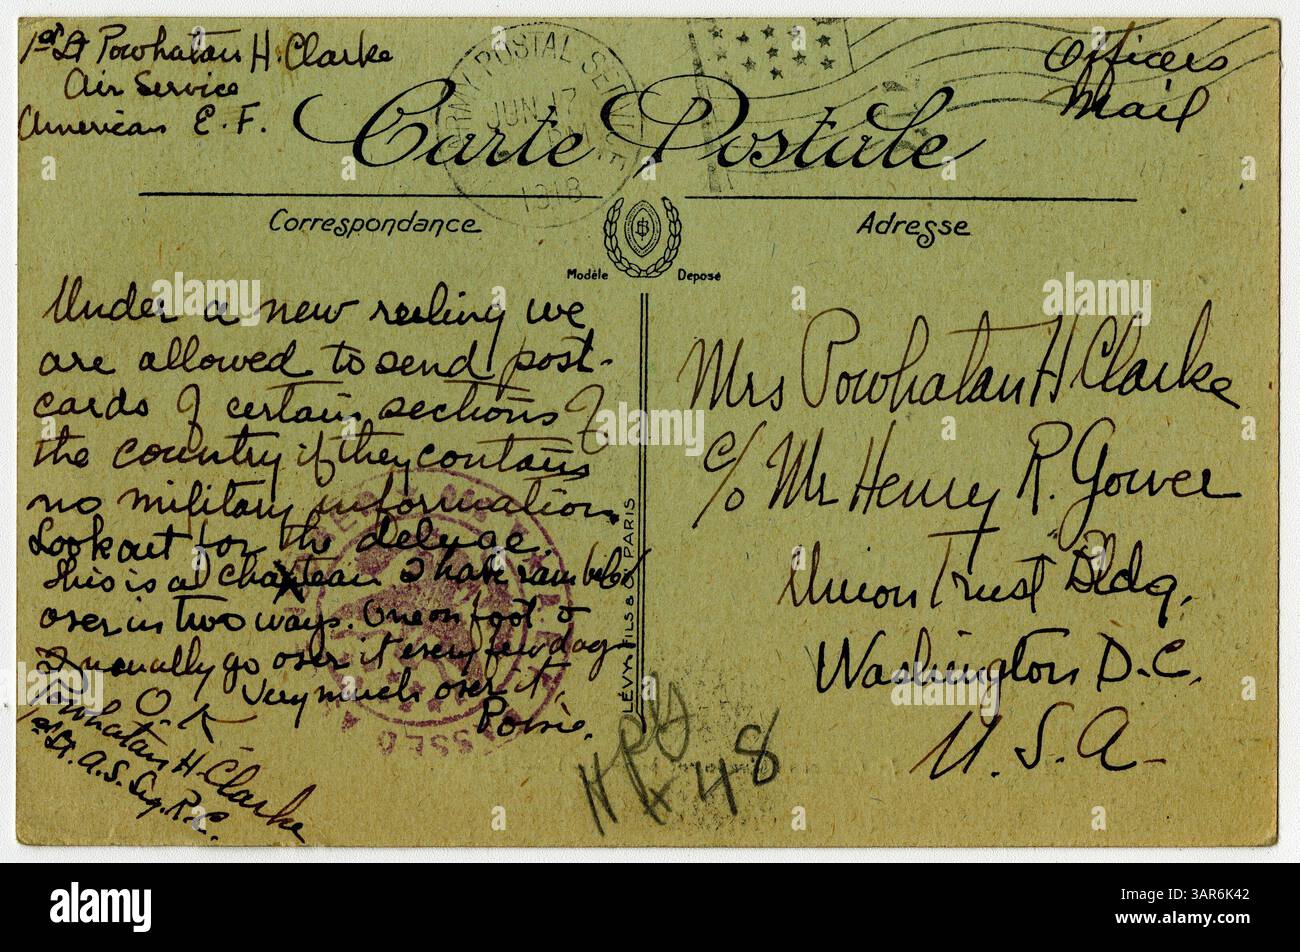 1st Lt Powhatan H. Clarke
Air Service
American E. F.
Officers
Mail
ARMY POSTAL SERVICE
JUN 17
1918
Carte Postale
Correspondance
Adresse
Modèle Déposé
Under a new ruling we
are allowed to send post-
cards of certain sections of
the country if they contain
no military information.
Look out for the deluge.
This is a chateau I have
over in two ways. One on foot &
I usually go over it every few days
Very much over it.
O K
Powhatan H. Clarke
1st Lt. A.S. Sig. R.C.
LÉVY FILS & Cie PARIS
Mrs Powhatan H Clarke
c/o Mr Henry R. Gower
Union Trust Bldg.
Washington D.C.
U. S. A.
48
alamy
Image ID: 3AR6K42
www.alamy.com